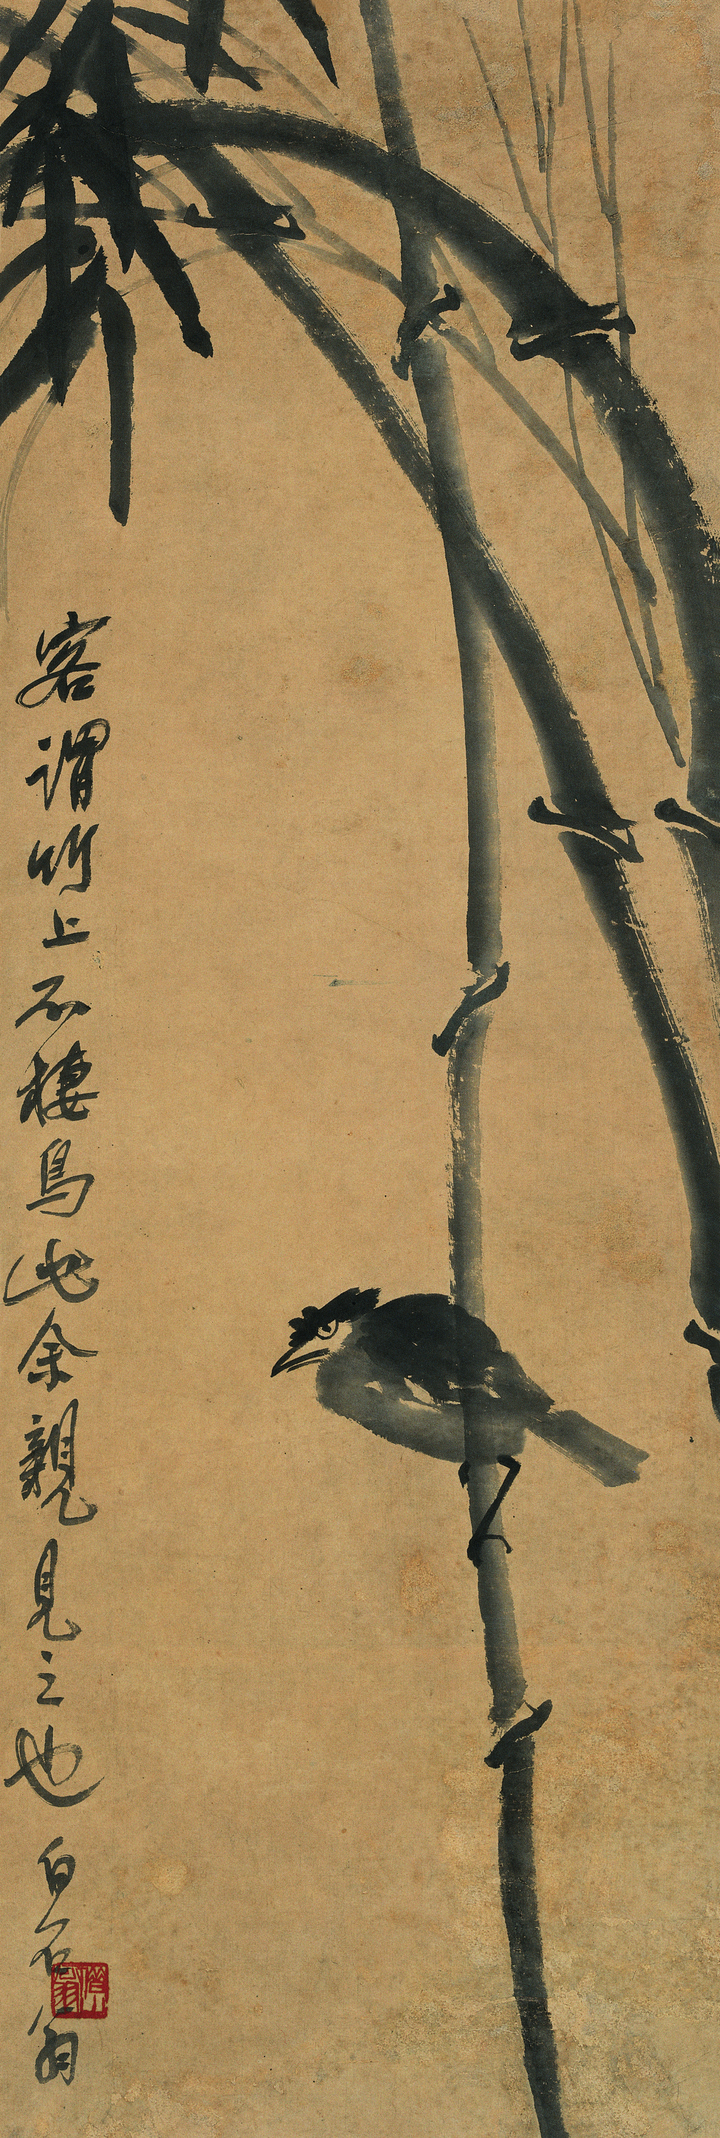 客谓竹上不棲鳥此余親見之也白石翁